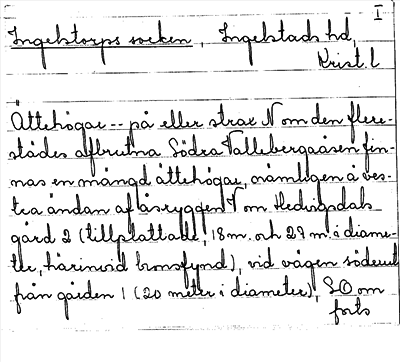 I
Ingelstorps socken, Ingelstads hd,
Krist. l
Ättehögar -- på eller strax N om den flere-
städes afbrutna Södra Vallebergaåsen fin-
nas en mängd ättehögar, nämligen å ves-
tra ändan af åsryggen N om Hedvigsdals
gård 2 (tillplattade, 18 m. och 29 m. i diame-
ter, härinvid bronsfynd), vid vägen söderut
från gården 1 (20 meter i diameter), SO om
forts